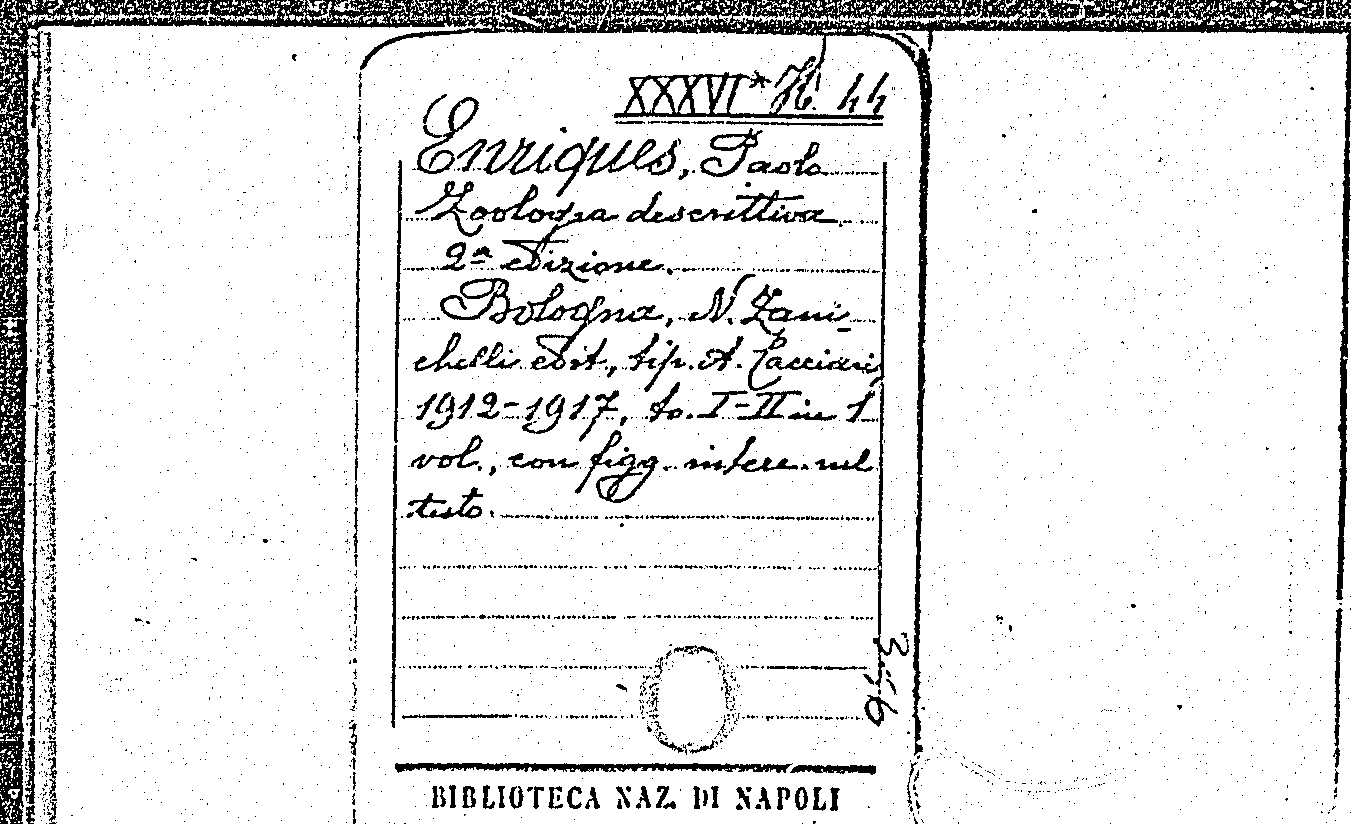 XXXVI* H. 44
Enriques, Paolo
Zoologia descrittiva
2ª edizione.
Bologna, N. Zani-
chelli edit., tip. A. Cacciari,
1912-1917, to. I-II in 1
vol., con figg. interc. nel
testo.
BIBLIOTECA NAZ. DI NAPOLI